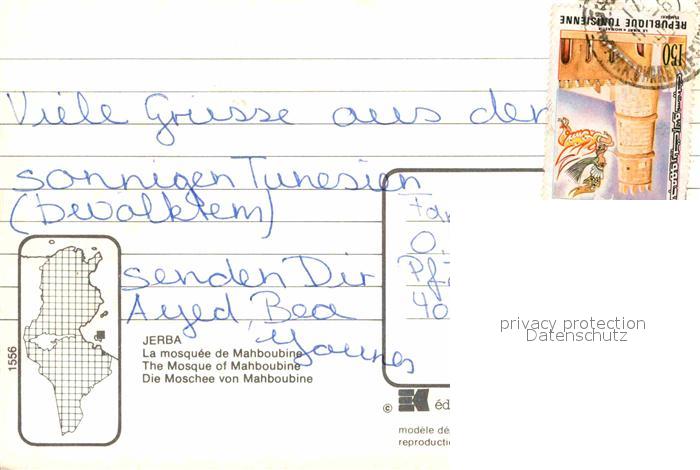 Viele Grüsse aus dem
sonnigen Tunesien
(bewölktem)
senden Dir
Ayed, Bea
Younes
1556
JERBA
La mosquée de Mahboubine
The Mosque of Mahboubine
Die Moschee von Mahboubine
REPUBLIQUE TUNISIENNE
150
40
privacy protection
Datenschutz
© éd
modèle dé
reproducti